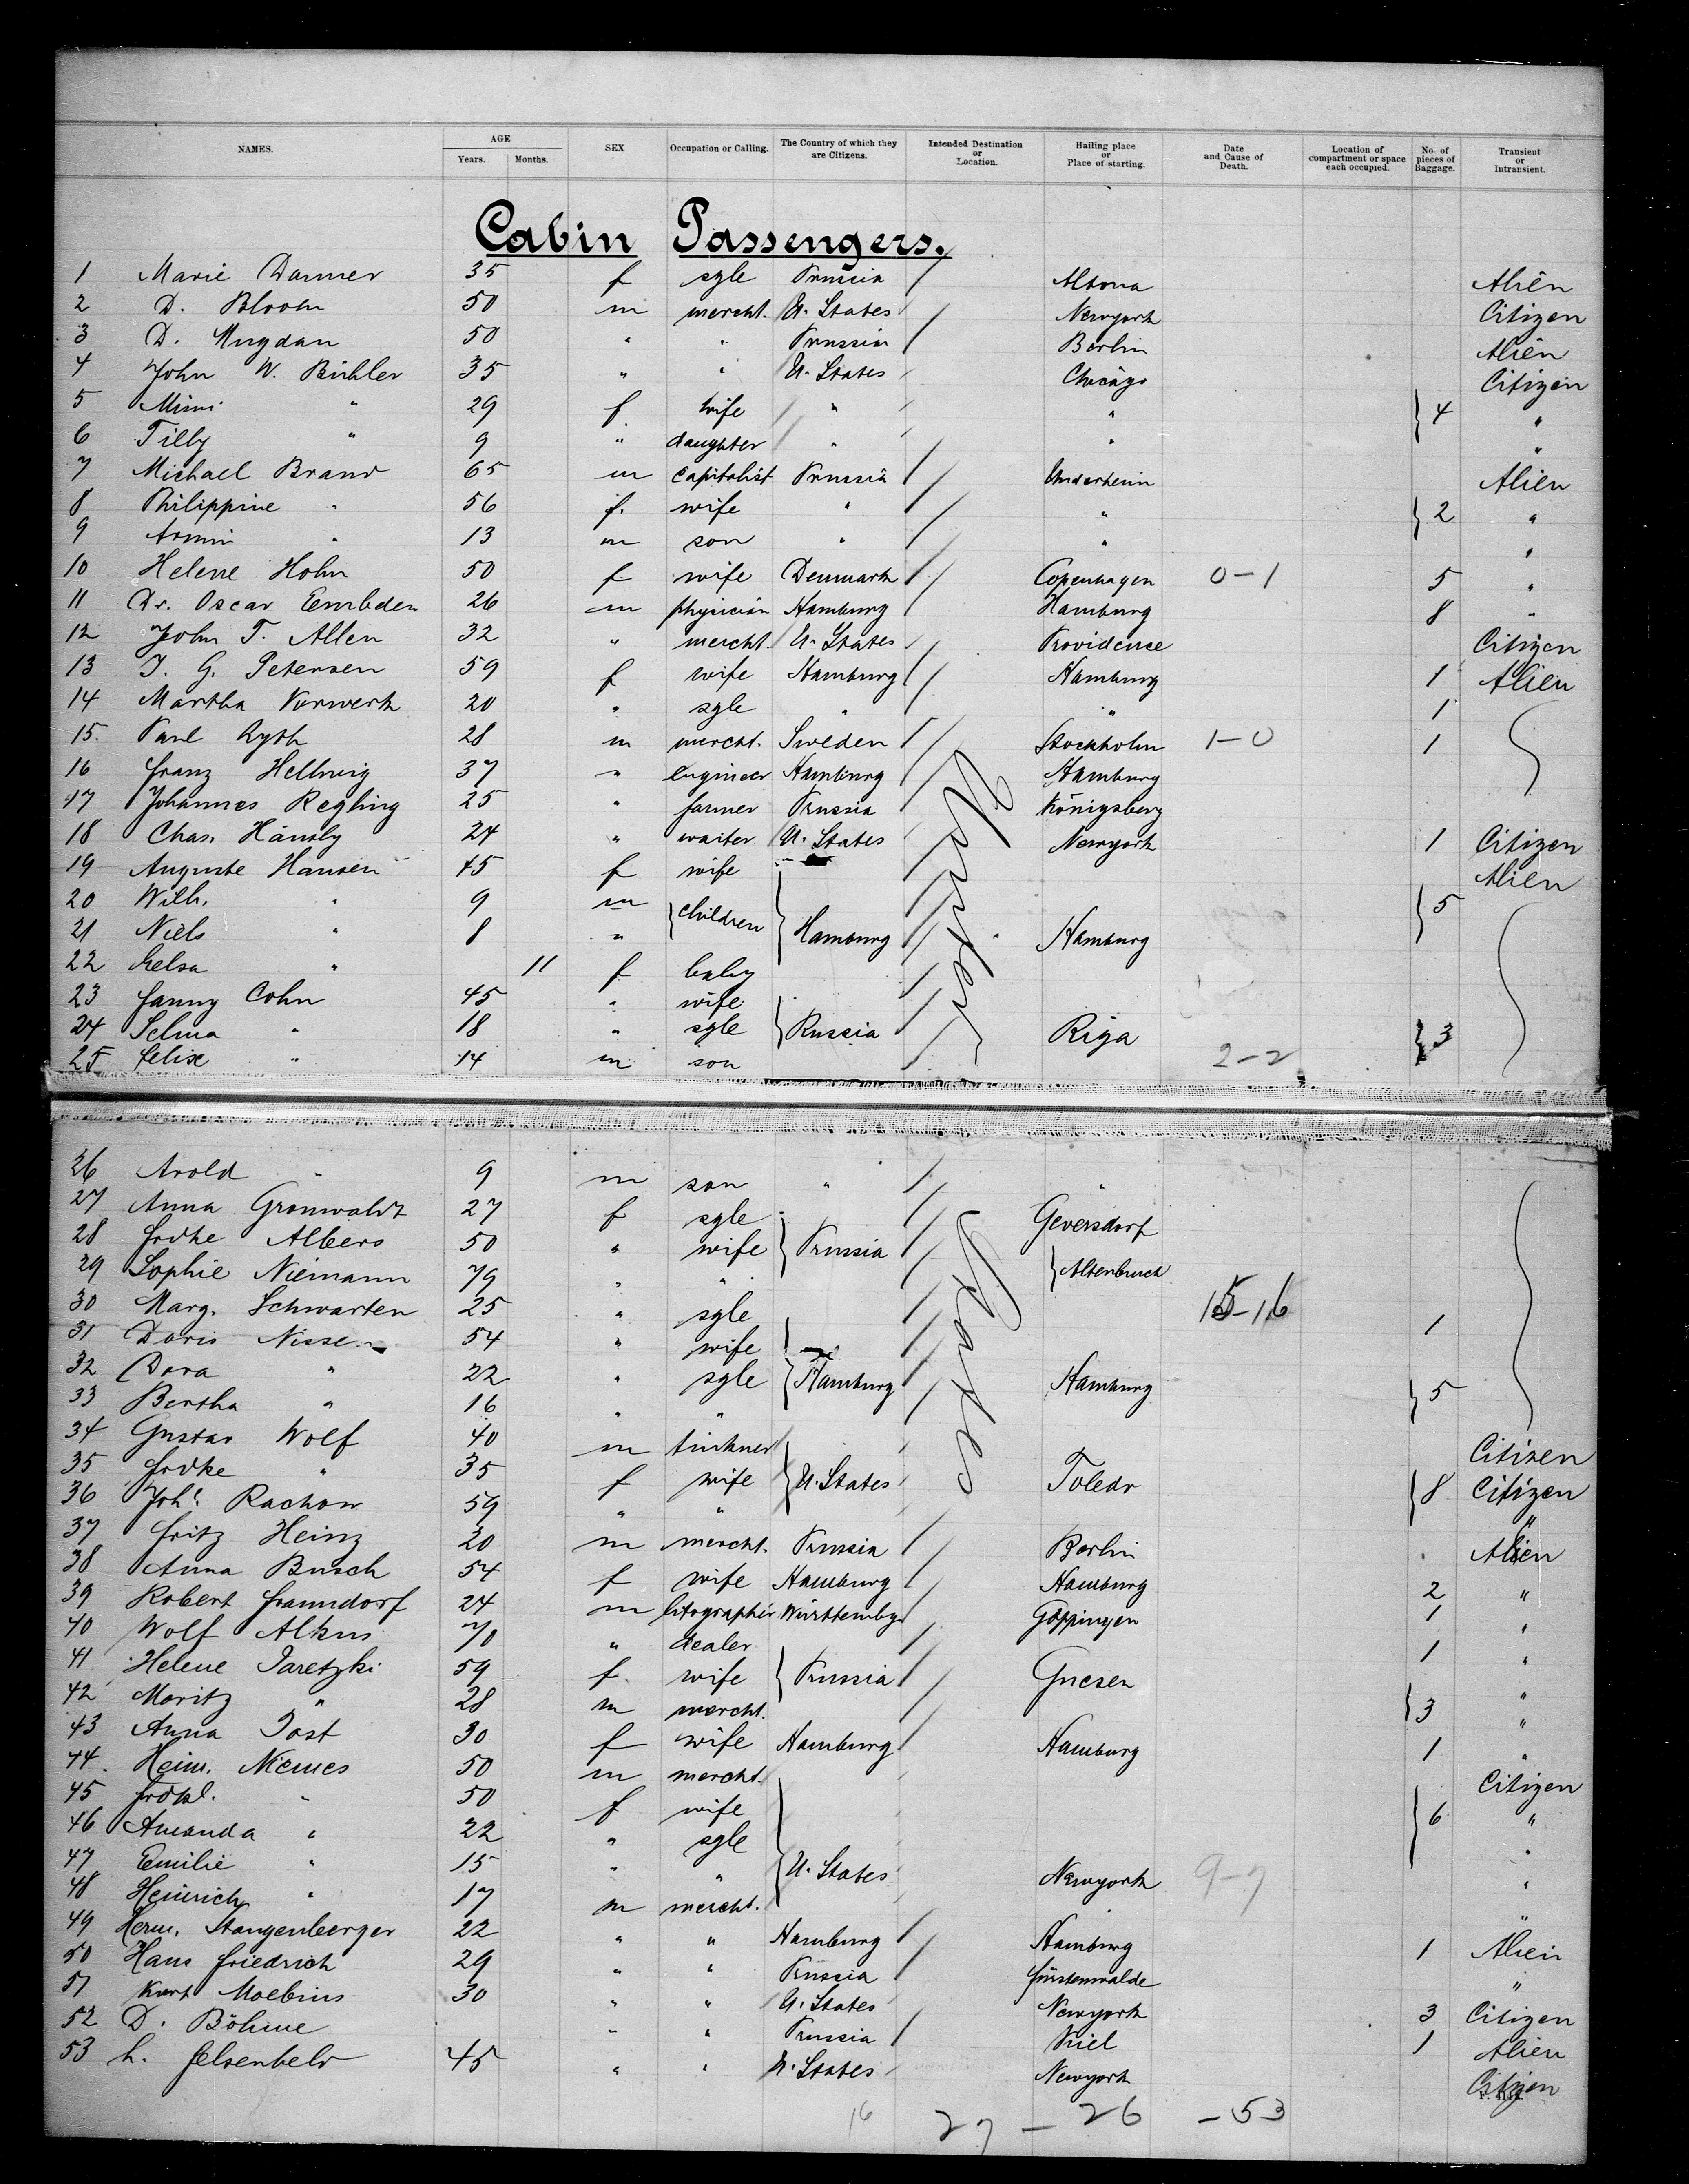 NAMES. AGE Years. Months. SEX Occupation or Calling. The Country of which they are Citizens. Intended Destination or Location. Hailing place or Place of starting. Date and Cause of Death. Location of compartment or space each occupied. No. of pieces of Baggage. Transient or Intransient.
Cabin Passengers.
1 Marie Danner 35 f sgle Prussia Altona Alien
2 D. Bloom 50 m mercht. U. States Newyork Citizen
3 D. Mugdan 50 " " Prussia Berlin Alien
4 John W. Bühler 35 " " U. States Chicago Citizen
5 Mimi " 29 f wife " " } 4 "
6 Tilly " 9 " daughter " " "
7 Michael Brand 65 m capitalist Prussia Alien
8 Philippine " 56 f. wife " " } 2 "
9 Armin " 13 m son " " "
10 Helene Hohn 50 f wife Denmark Copenhagen 0-1 5 "
11 Dr. Oscar Embden 26 m physician Hamburg Hamburg 8 "
12 John T. Allen 32 " mercht. U. States Providence Citizen
13 J. G. Petersen 59 f wife Hamburg Hamburg 1 Alien
14 Martha Vorwerk 20 " sgle " " 1
15 Paul Ryth 28 m mercht. Sweden Stockholm 1-0 1
16 Franz Hellwig 37 " engineer Hamburg Hamburg
17 Johannes Regling 25 " farmer Prussia Königsberg
18 Chas. Hänsly 24 " waiter U. States Newyork 1 Citizen
19 Auguste Hansen 45 f wife Alien
20 Wilh. " 9 m } children } 5
21 Niels " 8 " Hamburg Hamburg
22 Helsa " 11 f baby
23 Fanny Cohn 45 " wife
24 Selma " 18 " sgle } Russia Riga } 3
25 Felix " 14 m son 2-2
26 Arold " 9 m son " "
27 Anna Gronwaldt 27 f sgle Geversdorf
28 Frdke Albers 50 " wife } Prussia
29 Sophie Niemann 79 " " } Altenbruch
30 Marg. Schwarten 25 " sgle 15-16 1
31 Doris Nissen 54 " wife
32 Dora " 22 " sgle } Hamburg Hamburg } 5
33 Bertha " 16 " "
34 Gustav Wolf 40 m Citizen
35 Frdke " 35 f wife } U. States Toledo } 8 Citizen
36 Johs. Rachow 59 " " "
37 Fritz Heinz 20 m mercht. Prussia Berlin Alien
38 Anna Busch 54 f wife Hamburg Hamburg 2 "
39 Robert Franndorf 24 m litographer Württembg. Göppingen 1 "
40 Wolf Alkus 70 " dealer 1 "
41 Helene Jaretzki 59 f wife } Prussia Gnesen "
42 Moritz " 28 m mercht. } 3 "
43 Anna Jost 30 f wife Hamburg Hamburg 1 "
44 Heinr. Niemes 50 m mercht. Citizen
45 " 50 f wife } 6 "
46 Amanda " 22 " sgle "
47 Emilie " 15 " " } U. States Newyork 9-7 "
48 Heinrich " 17 m mercht. "
49 Herm. Stangenberger 22 " " Hamburg Hamburg 1 Alien
50 Hans Friedrich 29 " " Prussia Fürstenwalde "
51 Kurt Moebius 30 " " U. States Newyork 3 Citizen
52 D. Böhme " " Prussia Kiel 1 Alien
53 L. Felsenheld 45 " " U. States Newyork Citizen
16 27 - 26 - 53